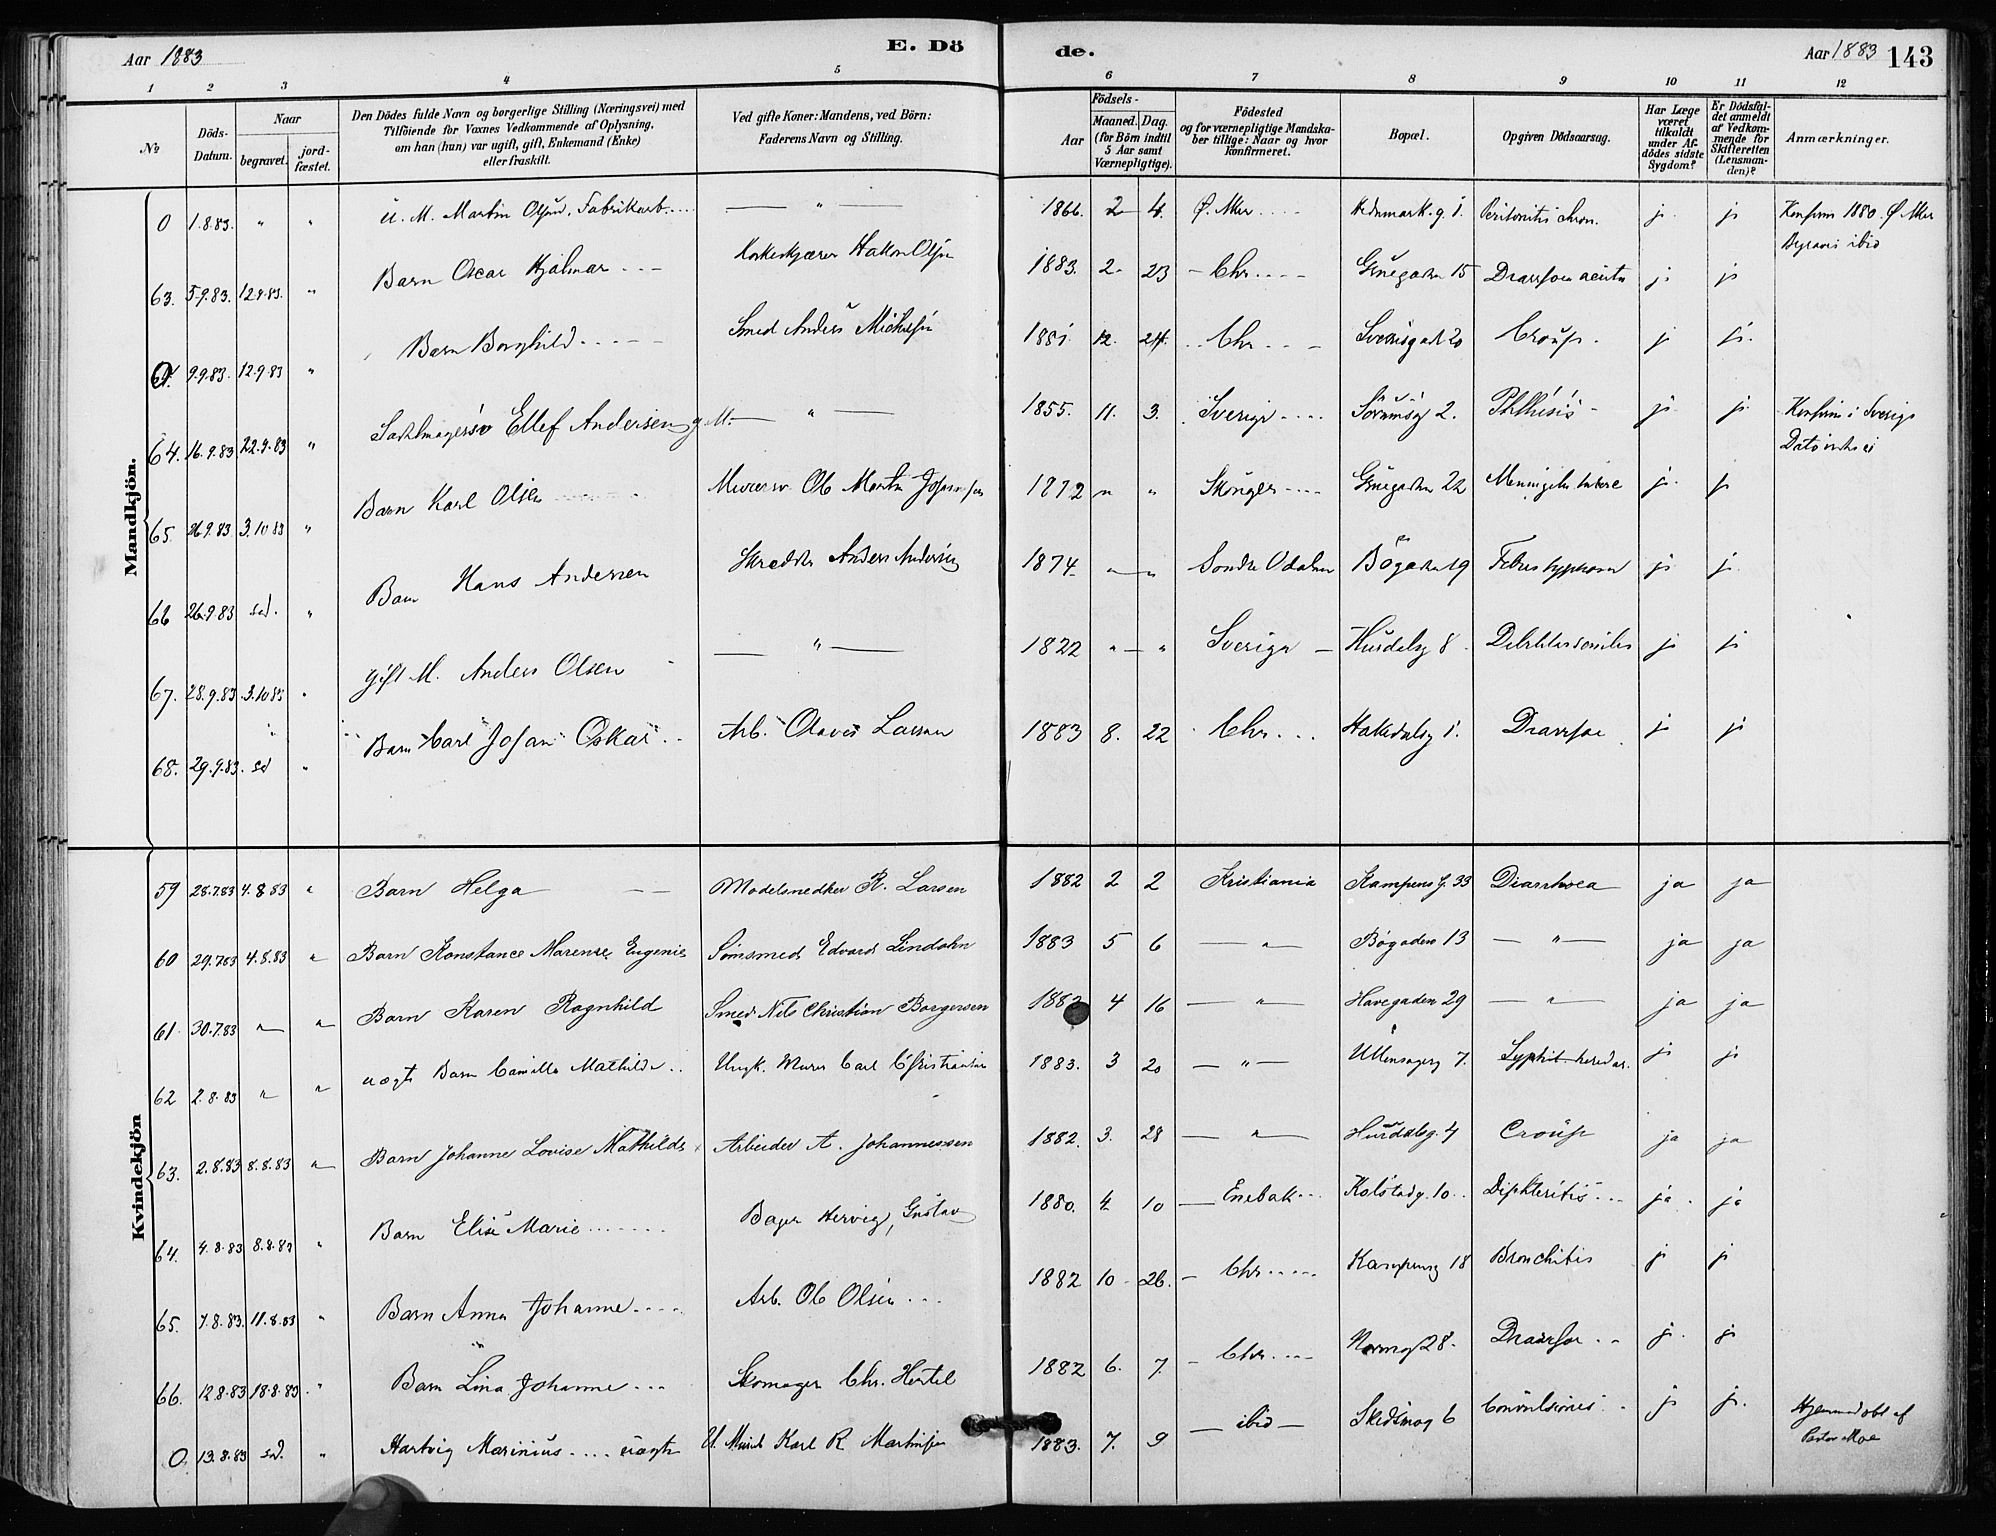 Aar 1883
E. Dö
de.
Aar 1883
143
1 2 3 4 5 6 7 8 9 10 11 12
No
Döds-Datum.
Naar
begravet.
jordfæstet.
Den Dödes fulde Navn og borgerlige Stilling (Næringsvei) med
Tilföiende for Voxnes Vedkommende af Oplysning,
om han (hun) var ugift, gift, Enkemand (Enke)
eller fraskilt.
Ved gifte Koner: Mandens, ved Börn:
Faderens Navn og Stilling.
Födsels-
Aar
Maaned. Dag.
(for Börn indtil
5 Aar samt
Værnepligtige).
Födested
og for værnepligtige Mandska-
ber tillige: Naar og hvor
konfirmeret.
Bopæl.
Opgiven Dödsaarsag.
Har Læge
været
tilkaldt
under Af-
dödes sidste
Sygdom?
Er Dödsfal-
det anmeldt
af Vedkom-
mende for
Skifteretten
(Lensman-
den)?
Anmærkninger.
Mandkjön.
0 1.8.83. " " u. M. Martin Olsen, Fabrikarb. — " — 1866. 2 4. Ø. Aker Hedemark.g. 1. Peritonitis chron. j. j. Konfirm 1880 Ø Aker
Begravet ibid
63. 5.9.83. 12.9.83. " Barn Oscar Hjalmar Hakon Olsen 1883. 2 23 Chr. Gruegaden 15 Diarrhoea acuta j. j.
9.9.83. 12.9.83 " Barn Borghild Smed Anders 1881. 12. 24. Chr. Sverrisgade 20 Croup. j j.
64. 16.9.83 22.9.83 " Sadelmagersv Ellef Andersen g. M. — " — 1855. 11. 3. Sverige Sørumsg 2. Phthisis j. j. Konfirm i Sverige
65. 26.9.83 3.10.83 " Barn Karl Olsen Murersv. Ole Martin Johansen 1872 " " Gruegaden 22 j. j.
66 26.9.83 sd. " Barn Hans Andersen Skrædder Anders Andersen 1874 " " Søndre Odalen Bøgaden 19 j. j.
67. 28.9.83 3.10.83 " gift M. Anders Olsen — " — 1822 " " Sverige Hurdalsg 8 j. j.
68. 29.9.83. sd " Barn Carl Johan Oskar Arb. Olaves Larsen 1883 8. 22 Chr. Hakedalsg 1. Diarrhoe j. j.
Kvindekjön
59 28.7.83 4.8.83 " Barn Helga Modelsnedker R. Larsen 1882 2 2 Kristiania Kampens g. 33 Diarrhoea ja ja
60 29.7.83 4.8.83 " Barn Konstance Marense Eugenie Sømsmed Edvard Lindahn 1883 5 6 — " — Bøgaden 13 — " — ja ja
61 30.7.83 " " Barn Karen Ragnhild Smed Nils Christian Borgersen 1882 4 16 — " — Havegaden 29 — " — ja ja
62 2.8.83 " " uægt Barn Camilla Mathilde Ungk. Murer Carl Christiansen 1883. 3 20 — " — Ullensagerg 7. Syphil. heredar. j. j.
63. 2.8.83 8.8.83 " Barn Johanne Lovise Mathilde Arbeider A. Johannessen 1882. 3. 28 — " — Hurdalsg. 4 Croup ja ja
64. 4.8.83 8.8.83 " Barn Elise Marie Bager Hervig, Gustav 1880. 4. 10 Enebak Kolstadg. 10. Diphteritis ja ja
65. 7.8.83. 11.8.83 " Barn Anna Johanne Arb. Ole Olsen 1882 10 26. Chr. Kampensg 18 Bronchitis j j.
66. 12.8.83 18.8.83 " Barn Lina Johanne Skomager Chr. Hertel 1882 6. 7. Chr. 28. Diarrhoe j. j.
0. 13.8.83 sd. " Hartvig Marinius uægte U. Karl R Martinsen 1883. 7. 9 — ibid — Skedsmog 6 Convulsiones j. j. Hjemmedøbt af
Pastor Moe